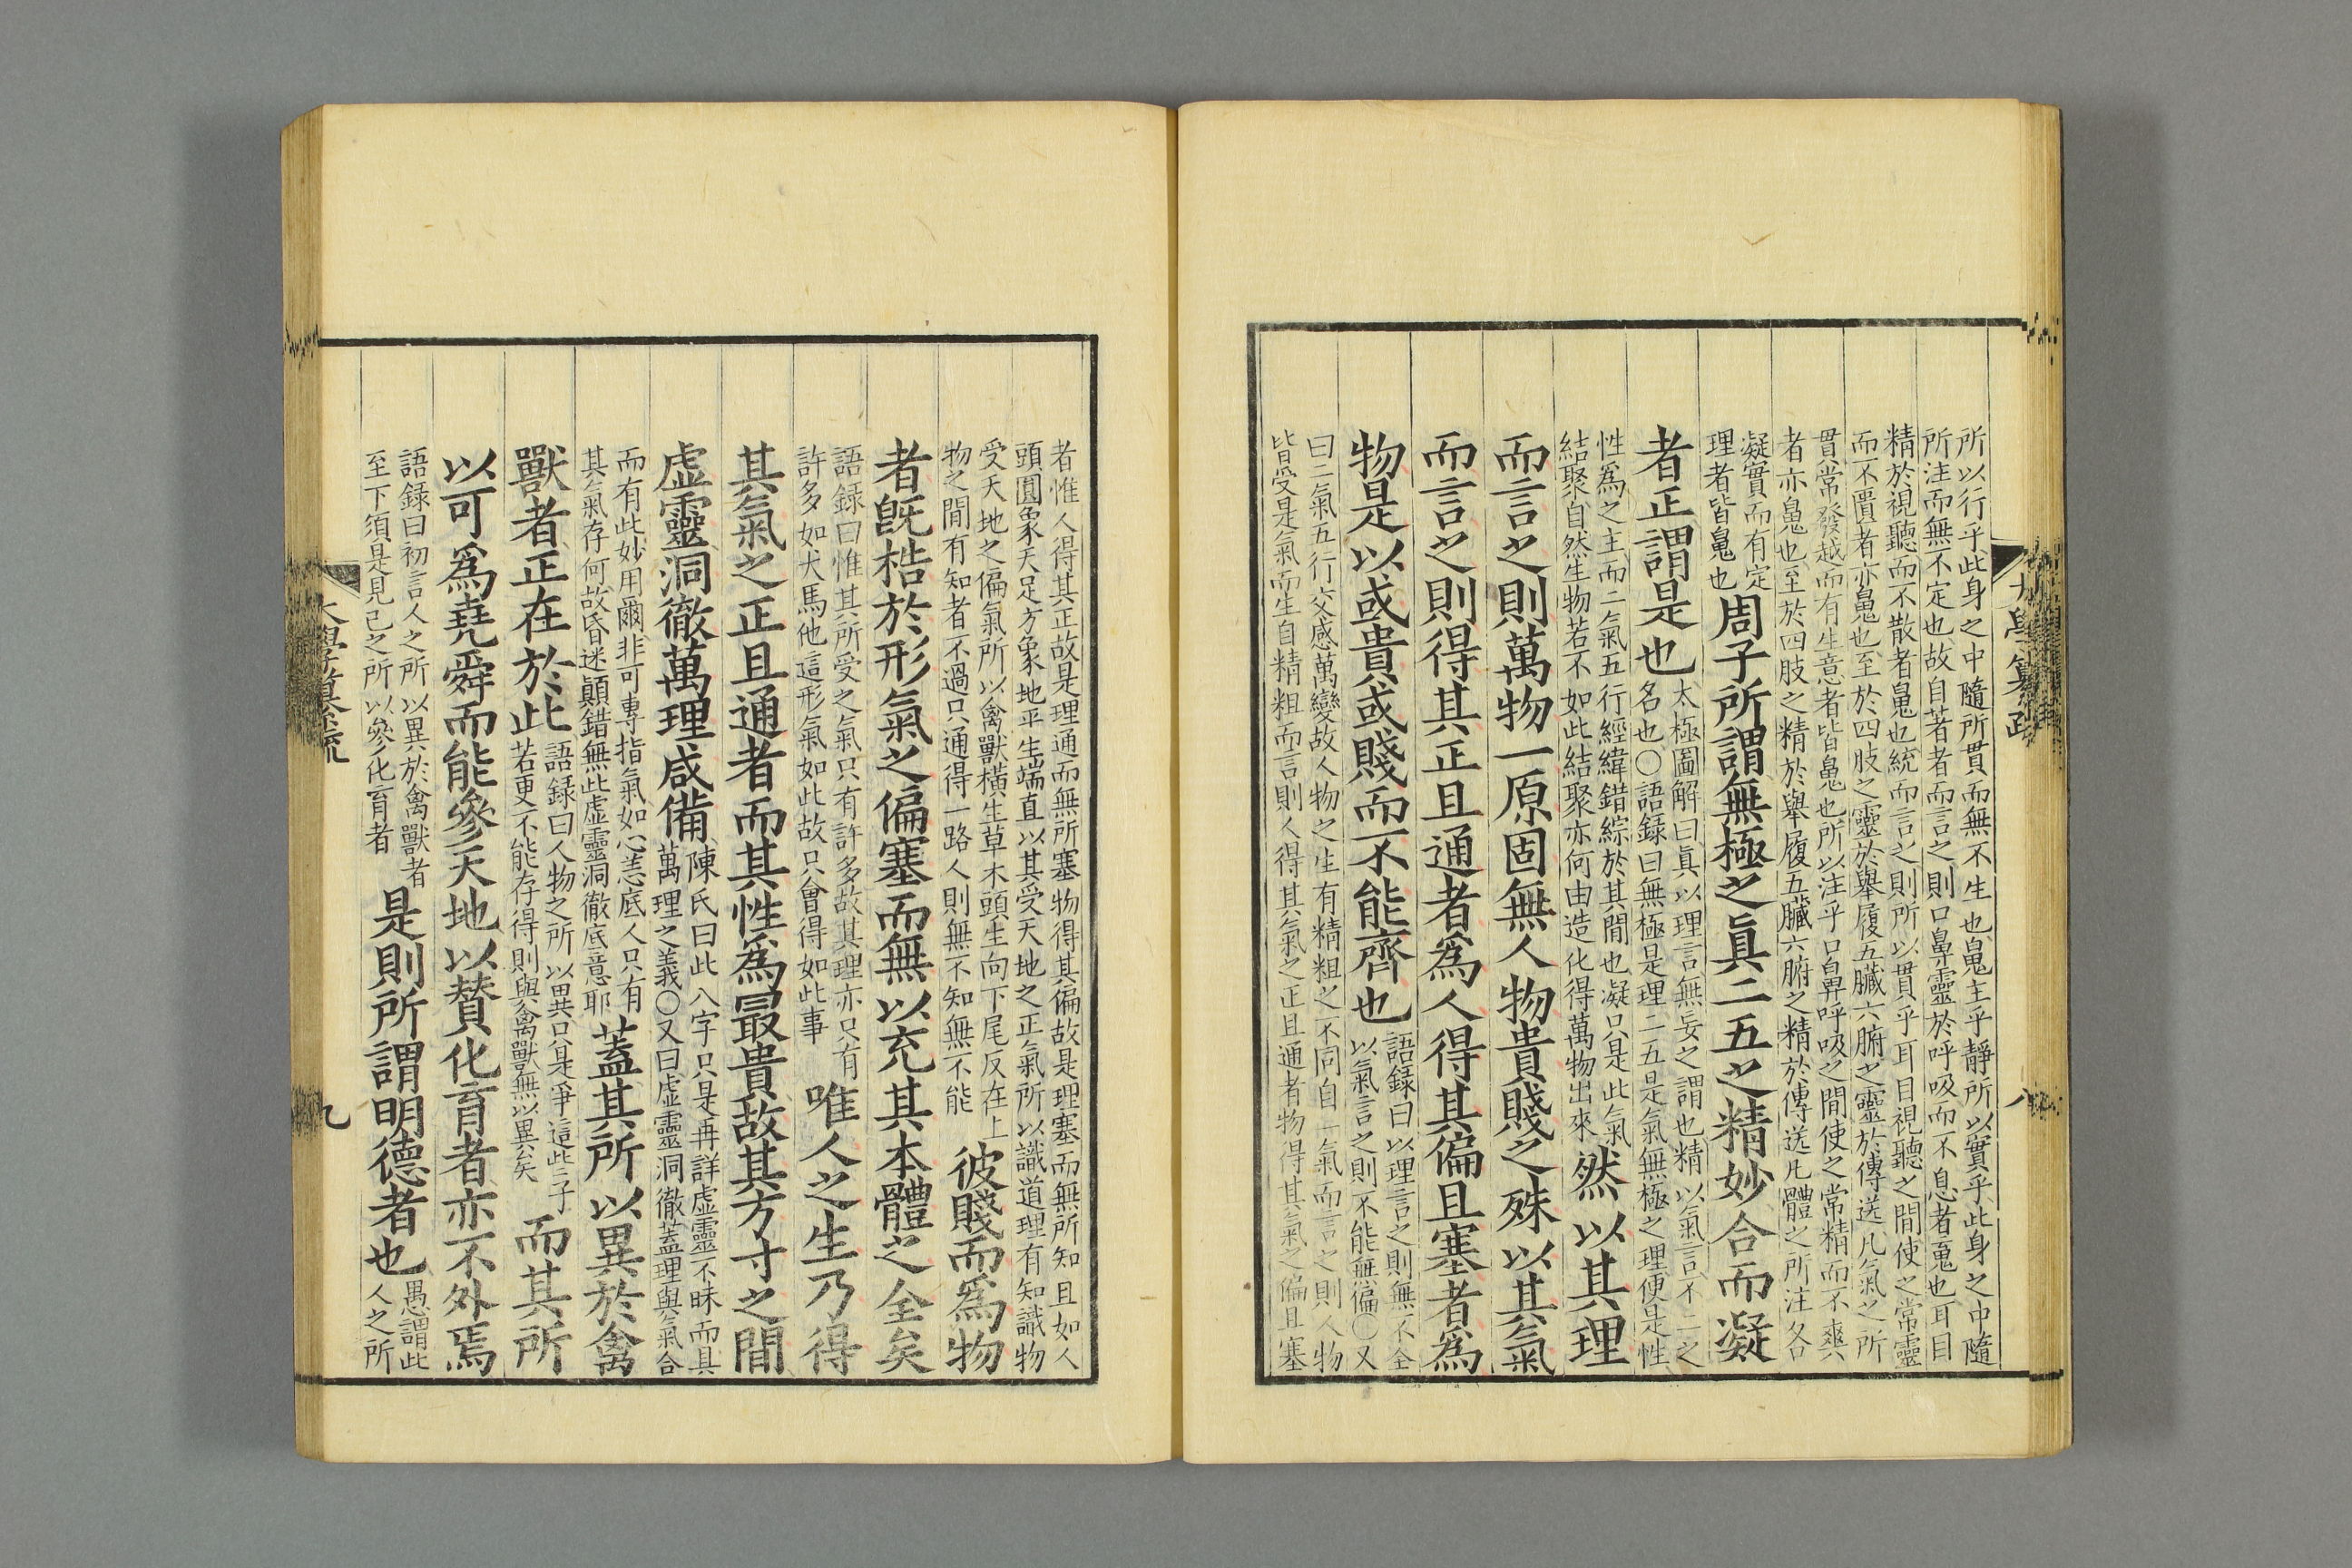 大學纂疏
八
所以行乎此身之中隨所貫而無不生也鬼主乎靜所以實乎此身之中隨
所注而無不定也故自著者而言之則口鼻靈於呼吸而不息者䰟也耳目
精於視聽而不散者鬼也統而言之則所以貫乎耳目視聽之間使之常靈
而不匱者亦䰟也至於四肢之靈於舉履五臟六腑之靈於傳送凡氣之所
貫常發越而有生意者皆䰟也所以注乎口鼻呼吸之間使之常精而不爽
者亦鬼也至於四肢之精於舉履五臟六腑之精於傳送凡體之所注各
凝實而有定
理者皆鬼也
周子所謂無極之眞二五之精妙合而凝
者正謂是也
太極圖解曰眞以理言無妄之謂也精以氣言不二之
名也○語錄曰無極是理二五是氣無極之理便是性
性爲之主而二氣五行經緯錯綜於其間也凝只是此氣
結聚自然生物若不如此結聚亦何由造化得萬物出來
然以其理
而言之則萬物一原固無人物貴賤之殊以其氣
而言之則得其正且通者爲人得其偏且塞者爲
物是以或貴或賤而不能齊也
語錄曰以理言之則無不全
以氣言之則不能無偏○又
曰二氣五行交感萬變故人物之生有精粗之不同自一氣而言之則人物
皆受是氣而生自精粗而言則人得其氣之正且通者物得其氣之偏且塞
者惟人得其正故是理通而無所塞物得其偏故是理塞而無所知且如人
頭圓象天足方象地平生端直以其受天地之正氣所以識道理有知識物
受天地之偏氣所以禽獸橫生草木頭生向下尾反在上
物之間有知者不過只通得一路人則無不知無不能
彼賤而爲物
者旣梏於形氣之偏塞而無以充其本體之全矣
語錄曰惟其所受之氣只有許多故其理亦只有
許多如犬馬他這形氣如此故只會得如此事
唯人之生乃得
其氣之正且通者而其性爲最貴故其方寸之間
虛靈洞徹萬理咸備
陳氏曰此八字只是再詳虛靈不昧而具
萬理之義○又曰虛靈洞徹蓋理與氣合
而有此妙用爾非可專指氣如心恙底人只有
其氣存何故昏迷顛錯無此虛靈洞徹底意耶
蓋其所以異於禽
獸者正在於此
語錄曰人物之所以異只是爭這些子
若更不能存得則與禽獸無以異矣
而其所
以可爲堯舜而能參天地以贊化育者亦不外焉
語錄曰初言人之所以異於禽獸者
至下須是見己之所以參化育者
是則所謂明德者也
愚謂此
人之所
大學纂疏
九